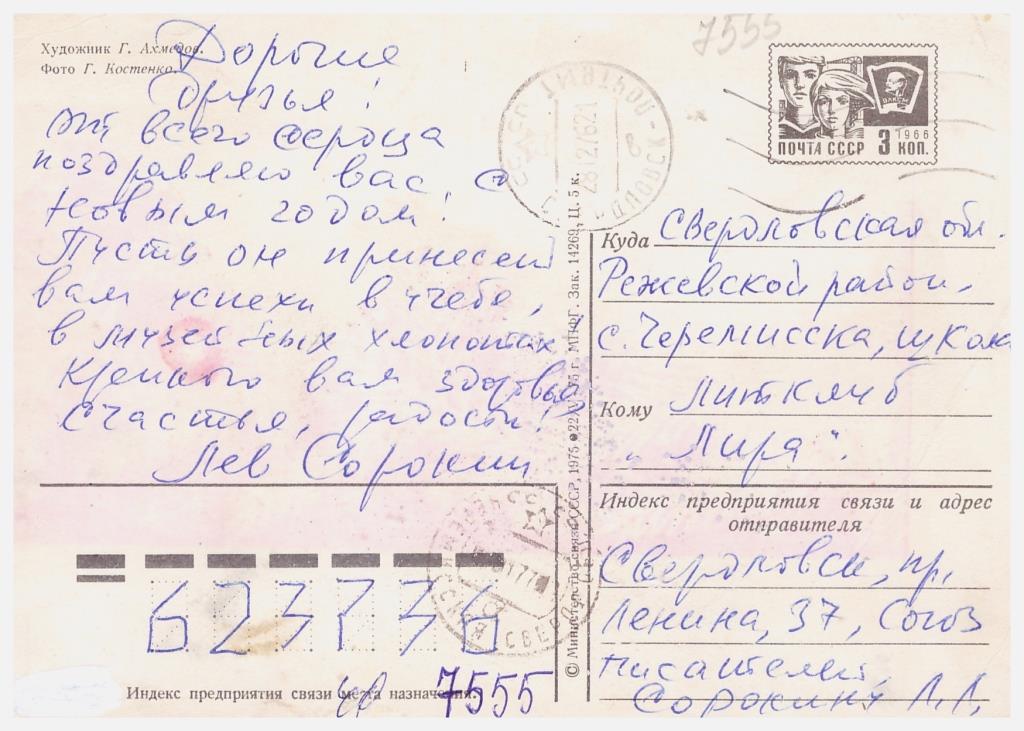 Художник Г. Ахмедов.
Фото Г. Костенко.
7555
Дорогие
друзья!
От всего сердца
поздравляю вас с
Новым годом!
Пусть он принесёт
вам успехи в учёбе,
в музейных хлопотах
Крепкого вам здоровья,
счастья, радости!
Лев Сорокин
ВЛКСМ
1966
ПОЧТА СССР 3 КОП.
28127621
Куда Свердловская обл.
Режевской район,
с. Черемисска, школа
Кому Литклуб
"Лира".
Индекс предприятия связи и адрес
отправителя
Свердловск, пр.
Ленина, 37, Союз
писателей,
Сорокину Л. Л.
© Министерство связи СССР, 1975
МПФГ. Зак. 14269, Ц. 5 к.
623736
Индекс предприятия связи места назначения.
7555